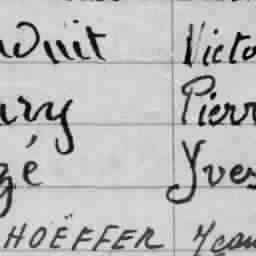 wnit Victo
ury Pierr
zé Yves
HOEFFER Jean